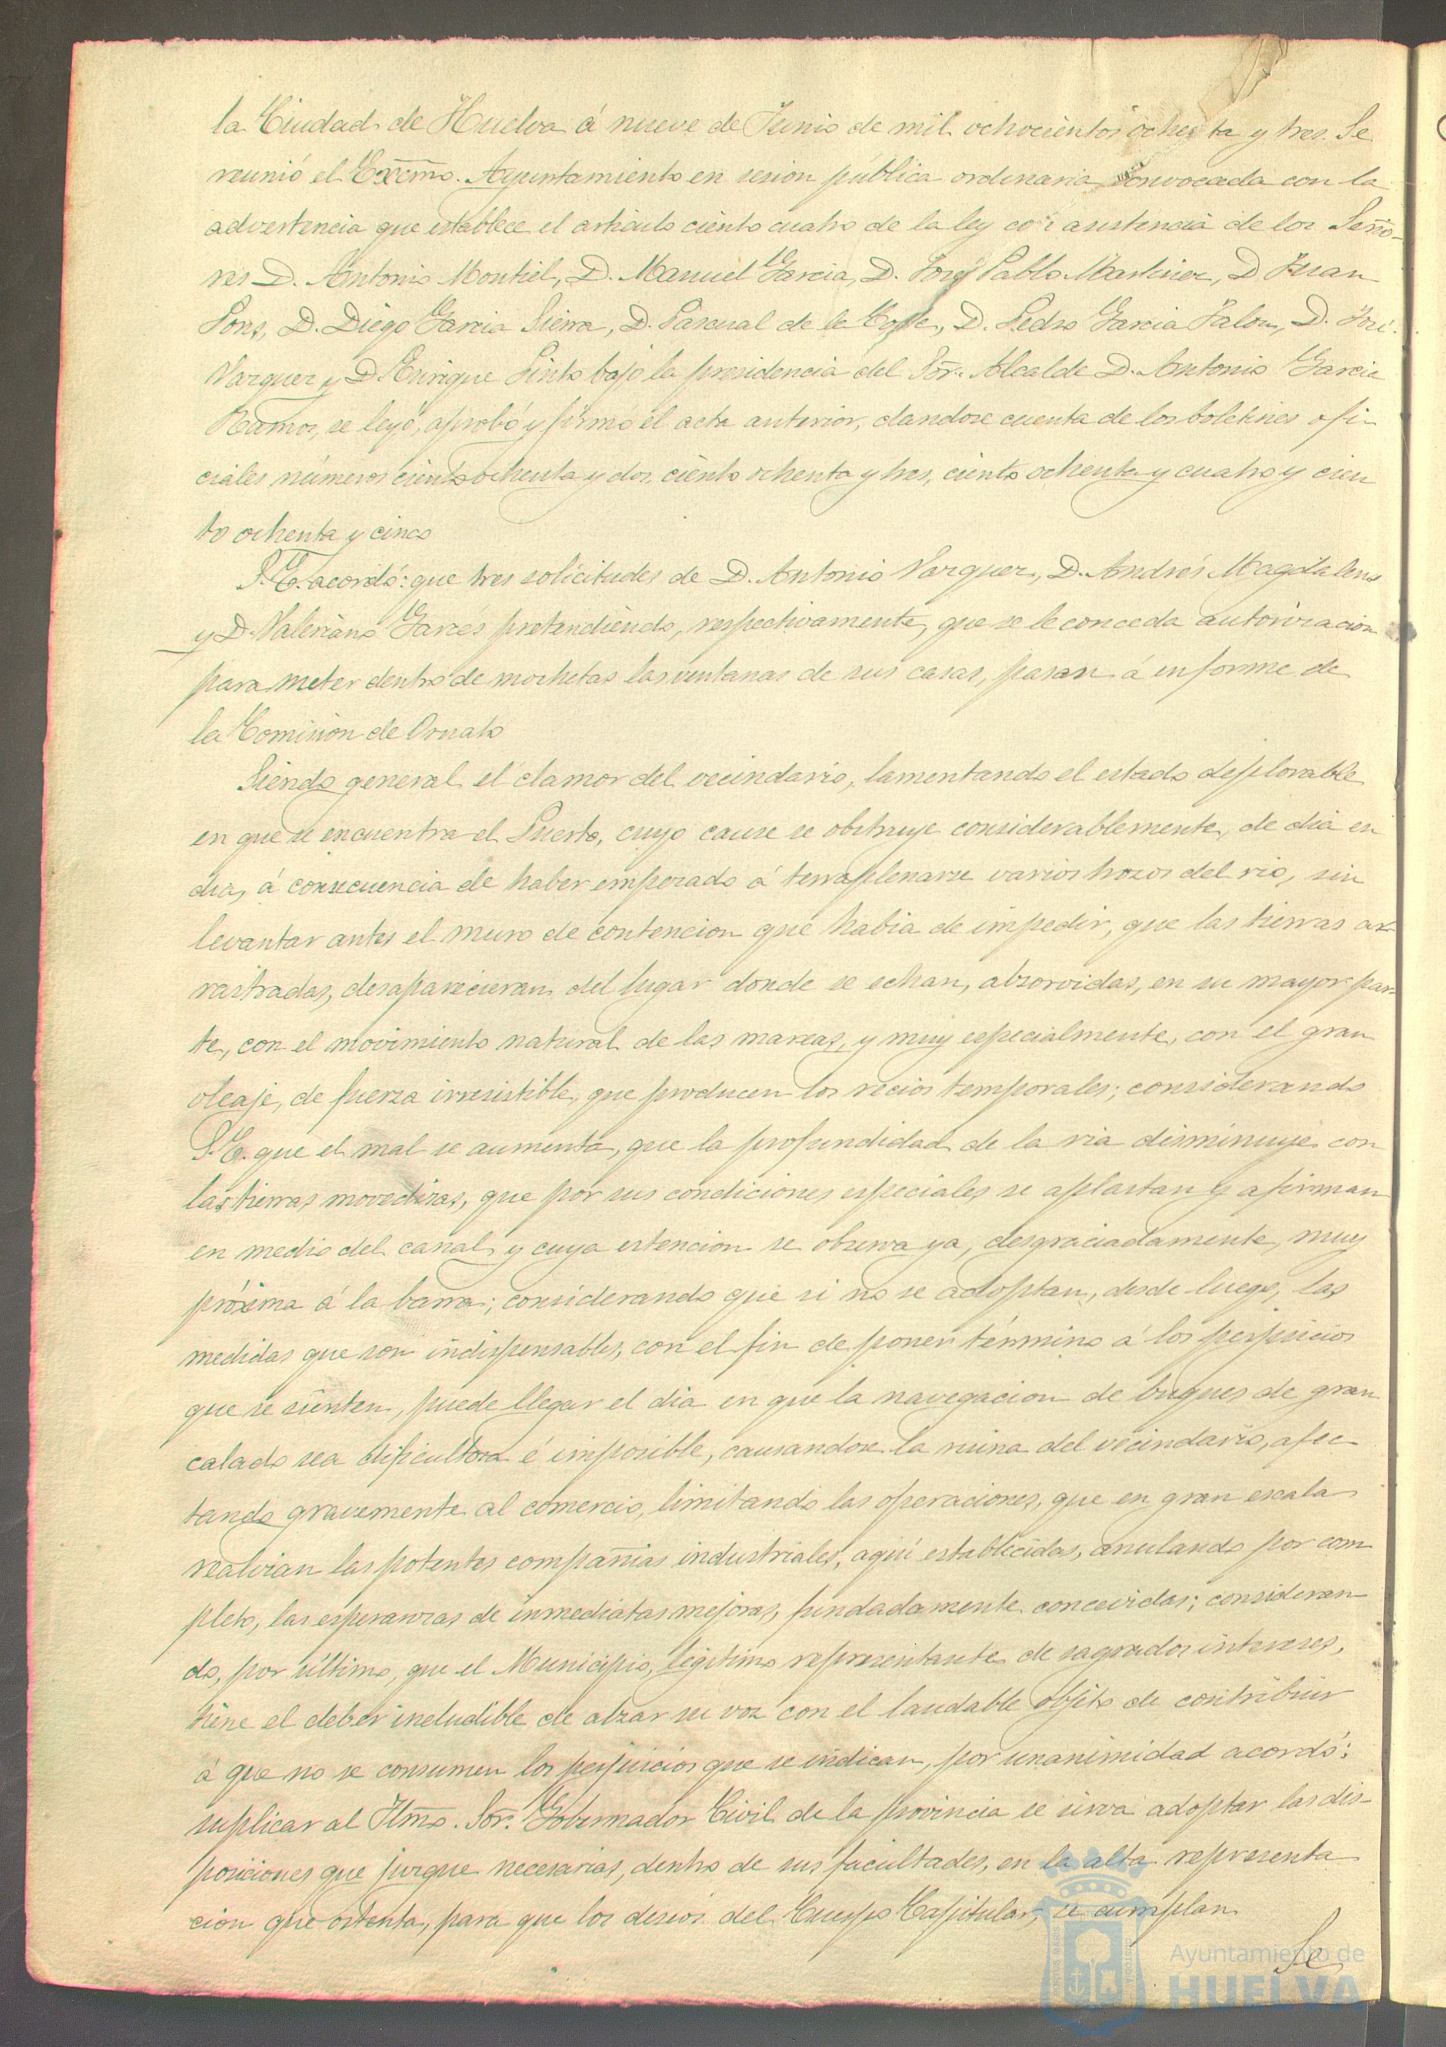 la Ciudad de Huelva á nueve de Junio de mil ochocientos ochenta y tres. Se
reunió el Excmo. Ayuntamiento en sesion pública ordinaria convocada con la
advertencia que establece el artículo ciento cuatro de la ley con asistencia de los Seño-
res D. Antonio Montiel, D. Manuel Garcia, D. José Pablo Martinez, D Juan
Pons, D. Diego Garcia Sierra, D. Pascual de la D. Pedro Garcia Jalon, D. José
Vazquez y D. Enrique Pinto bajo la presidencia del Sór. Alcalde D. Antonio Garcia
Ramos, se leyó, aprobó y firmó el acta anterior, dandose cuenta de los boletines ofi-
ciales números ciento ochenta y dos, ciento ochenta y tres, ciento ochenta y cuatro y cien
to ochenta y cinco
S. E. acordó: que tres solicitudes de D. Antonio Vazquez, D. Andrés Magdalena
y D. Valeriano Garcés pretendiendo, respectivamente, que se le conceda autorizacion
para meter dentro de mochetas las ventanas de sus casas, pasen á informe de
la Comision de Ornato
Siendo general el clamor del vecindario, lamentando el estado deplorable
en que se encuentra el Puerto, cuyo cauce se obstruye considerablemente, de dia en
dia, á consecuencia de haber empezado á terraplenarse varios trozos del rio, sin
levantar antes el muro de contencion que habia de impedir, que las tierras ar-
rastradas, desaparecieran del lugar donde se echan, absorvidas, en su mayor par-
te, con el movimiento natural de las mareas, y muy especialmente, con el gran
oleaje, de fuerza irresistible, que producen los recios temporales; considerando
S. E. que el mal se aumenta, que la profundidad de la ria disminuye con
las tierras movedizas, que por sus condiciones especiales se aplastan y afirman
en medio del canal y cuya estencion se observa ya, desgraciadamente, muy
próxima á la barra; considerando que si no se adoptan, desde luego, las
medidas que son indispensables, con el fin de poner término á los perjuicios
que se sienten, puede llegar el dia en que la navegacion de buques de gran
calado sea dificultosa é imposible, causandose la ruina del vecindario, afec
tando gravemente al comercio, limitando las operaciones, que en gran escala
realizan las potentes compañias industriales, aqui establecidas, anulando por com
pleto, las esperanzas de inmediatas mejoras, fundadamente concevidas; consideran
do, por último, que el Municipio, legítimo representante de sagrados intereses,
tiene el deber ineludible de alzar su voz con el laudable objeto de contribuir
á que no se consumen los perjuicios que se indican, por unanimidad acordó:
suplicar al Iltmo. Sor. Gobernador Civil de la provincia se sirva adoptar las dis-
posiciones que juzgue necesarias, dentro de sus facultades, en la alta representa
cion que ostenta, para que los deseos del Cuerpo Capitular, se cumplan
Se
Ayuntamiento de
HUELVA